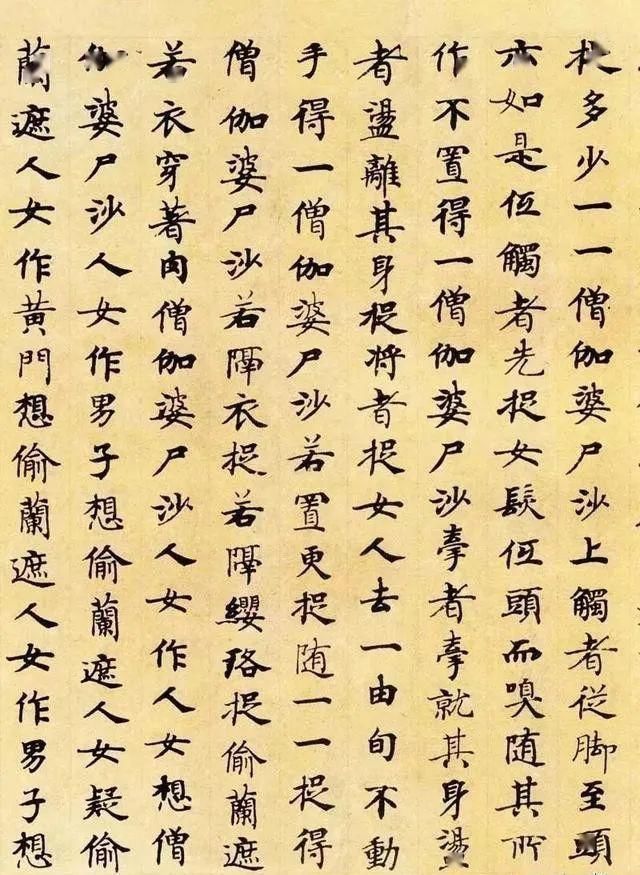 捉多少一一僧伽婆尸沙上觸者從脚至頭
六如是低觸者先捉女髮低頭而嗅随其所
作不置得一僧伽婆尸沙牽者牽就其身盪
者盪離其身捉将者捉女人去一由旬不動
手得一僧伽婆尸沙若置更捉随一一捉得
僧伽婆尸沙若隔衣捉若隔纓珞捉偷蘭遮
若衣穿著肉僧伽婆尸沙人女作人女想僧
伽婆尸沙人女作男子想偷蘭遮人女疑偷
蘭遮人女作黄門想偷蘭遮人女作男子想